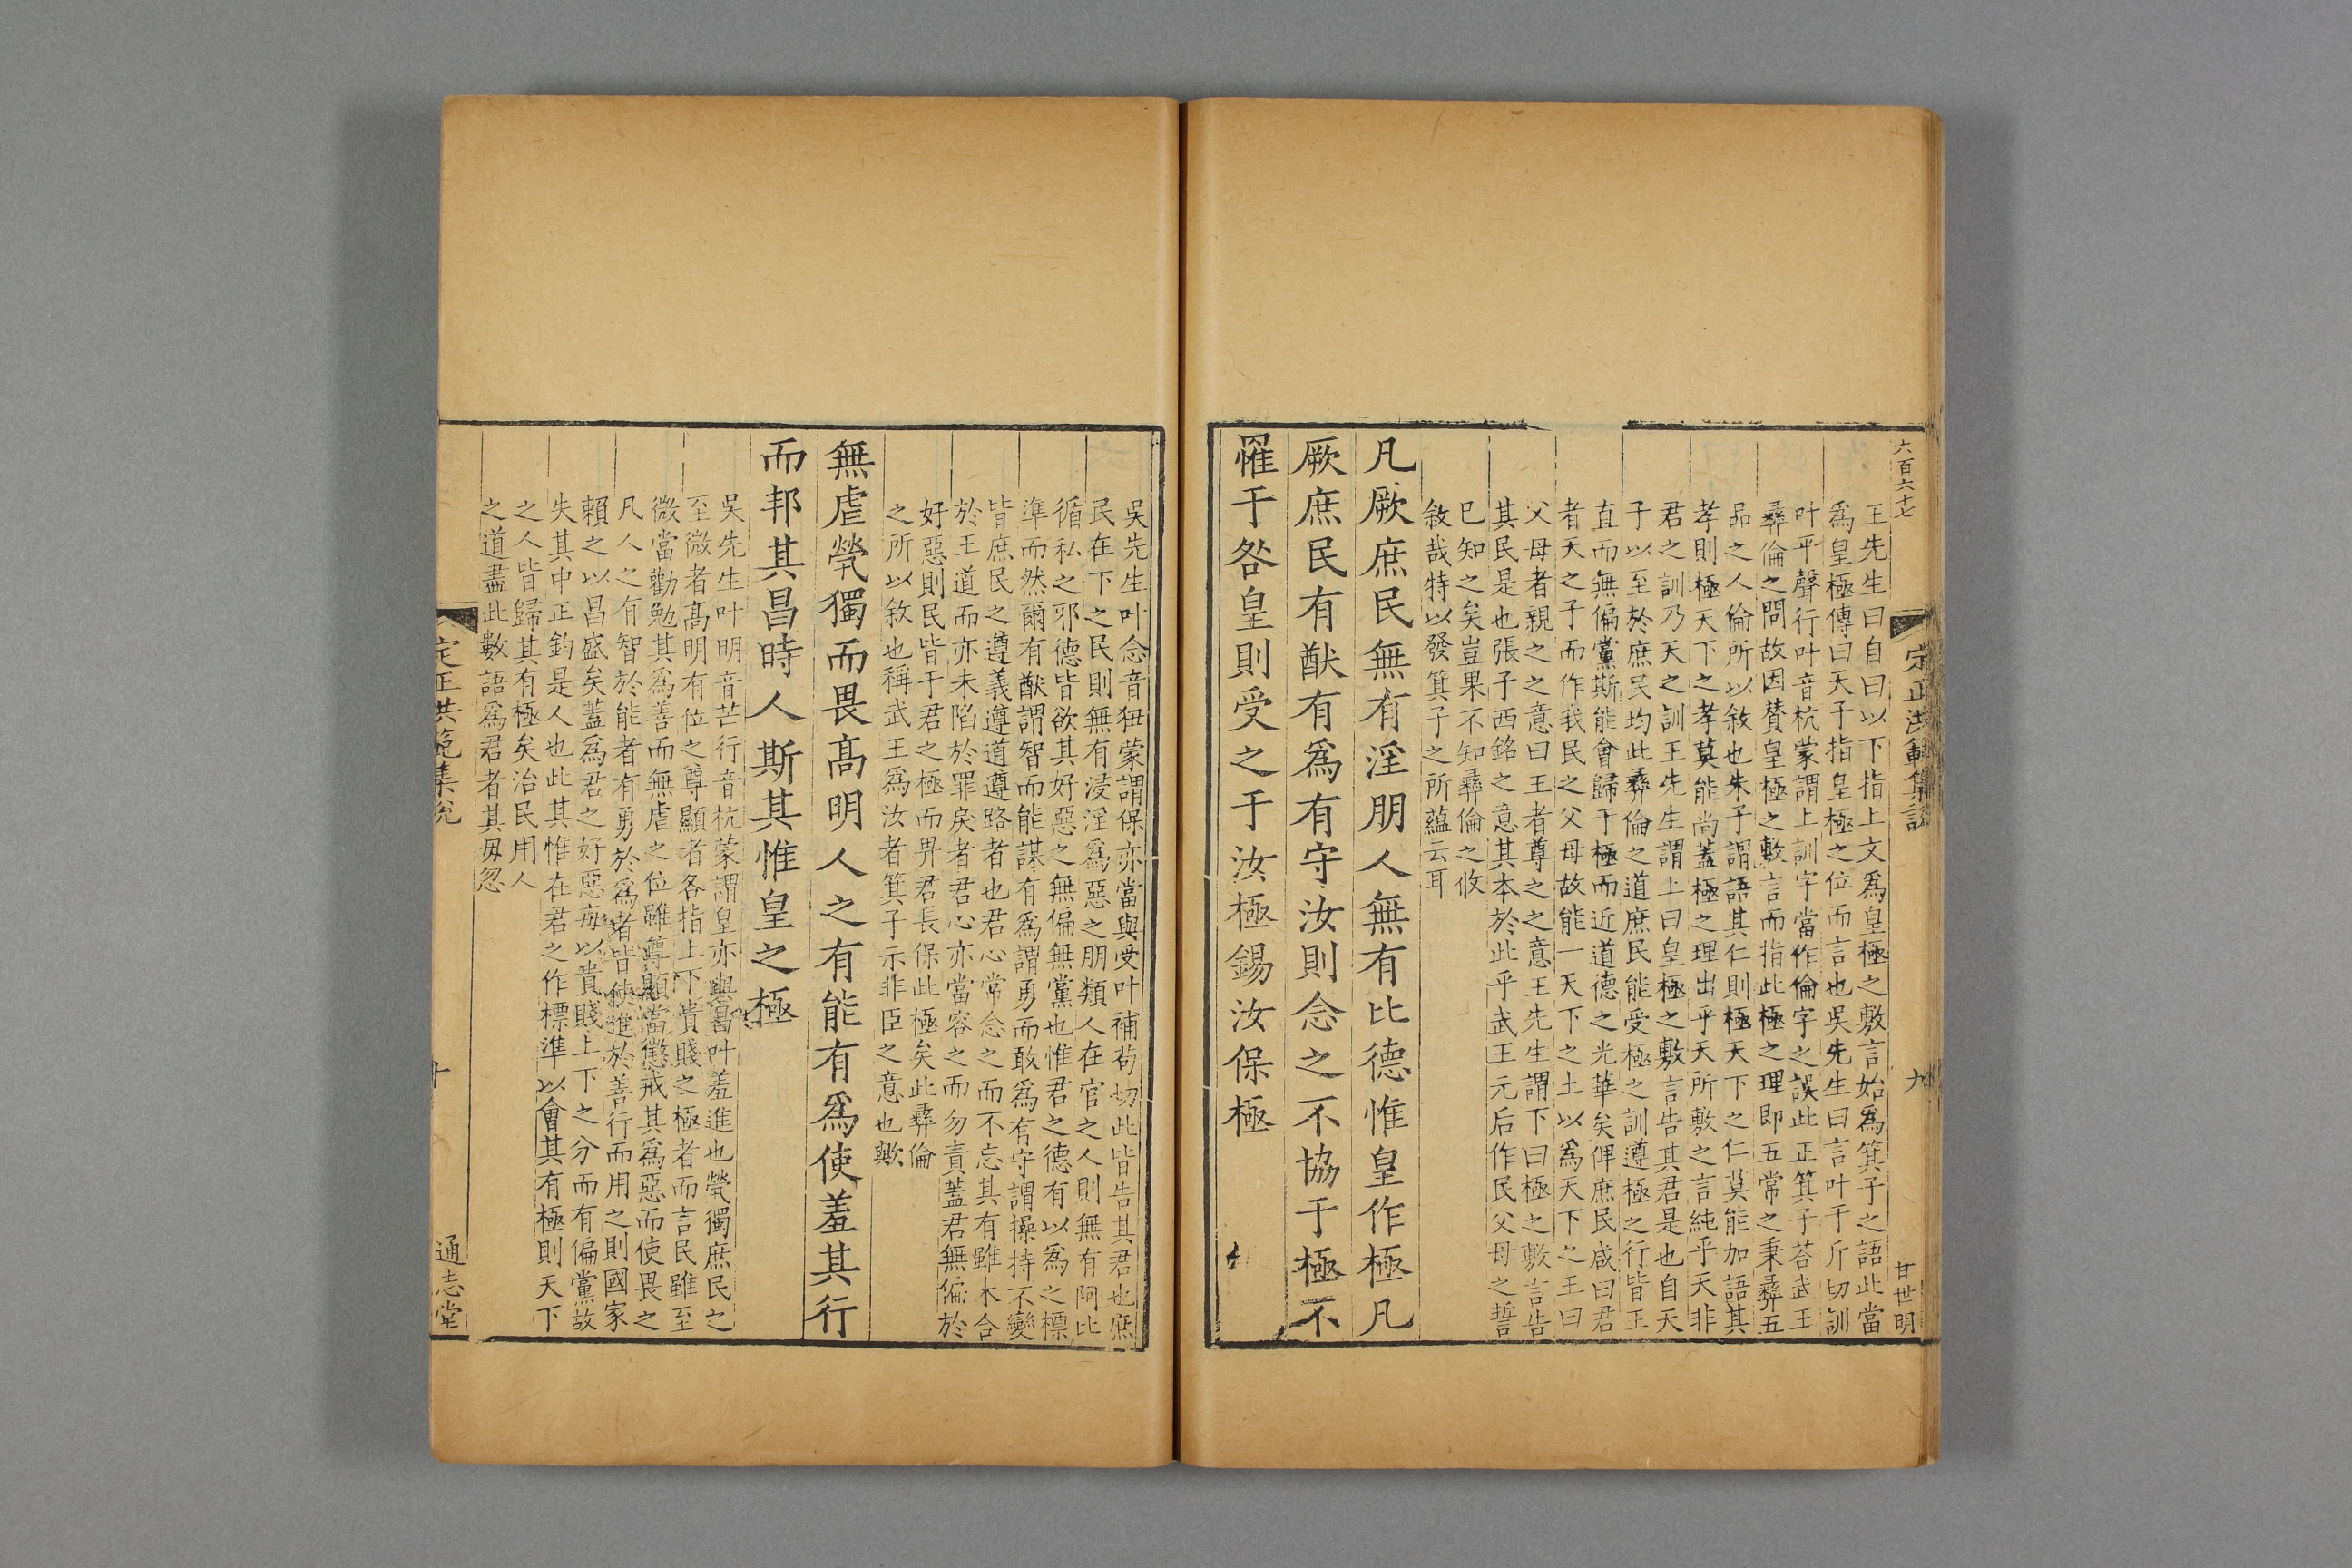 六百六十七
定正洪範集説
九
甘世明
王先生曰自曰以下指上文爲皇極之敷言始爲箕子之語此當
爲皇極傳曰天子指皇極之位而言也吳先生曰言叶于斤切訓
叶平聲行叶音杭蒙謂上訓字當作倫字之誤此正箕子荅武王
彞倫之問故因賛皇極之敷言而指此極之理即五常之秉彞五
品之人倫所以敘也朱子謂語其仁則極天下之仁莫能加語其
孝則極天下之孝莫能尚蓋極之理出乎天所敷之言純乎天非
君之訓乃天之訓王先生謂上曰皇極之敷言告其君是也自天
子以至於庶民均此彞倫之道庶民能受極之訓遵極之行皆王
直而無偏黨斯能會歸于極而近道德之光華矣俾庶民咸曰君
者天之子而作我民之父母故能一天下之土以爲天下之王曰
父母者親之之意曰王者尊之之意王先生謂下曰極之敷言告
其民是也張子西銘之意其本於此乎武王元后作民父母之誓
已知之矣豈果不知彞倫之攸
敘哉特以發箕子之所蘊云耳
凡厥庶民無有淫朋人無有比德惟皇作極凡
厥庶民有猷有爲有守汝則念之不協于極不
罹于咎皇則受之于汝極錫汝保極
吳先生叶念音狃蒙謂保亦當與受叶補苟切此皆告其君也庶
民在下之民則無有浸淫爲惡之朋類人在官之人則無有阿比
循私之邪德皆欲其好惡之無偏無黨也惟君之德有以爲之標
準而然爾有猷謂智而能謀有爲謂勇而敢爲有守謂操持不變
皆庶民之遵義遵道遵路者也君心常念之而不忘其有雖未合
於王道而亦未陷於罪戾者君心亦當容之而勿責蓋君無偏於
好惡則民皆于君之極而畀君長保此極矣此彞倫
之所以敘也稱武王爲汝者箕子示非臣之意也歟
無虐煢獨而畏髙明人之有能有爲使羞其行
而邦其昌時人斯其惟皇之極
吳先生叶明音芒行音杭蒙謂皇亦與昌叶羞進也煢獨庶民之
至微者髙明有位之尊顯者各指上下貴賤之極者而言民雖至
微當勸勉其爲善而無虐之位雖尊顯當懲戒其爲惡而使畏之
凡人之有智於能者有勇於爲者皆使進於善行而用之則國家
賴之以昌盛矣蓋爲君之好惡毎以貴賤上下之分而有偏黨故
失其中正鈞是人也此其惟在君之作標準以會其有極則天下
之人皆歸其有極矣治民用人
之道盡此數語爲君者其毋忽
定正洪範集説
十
通志堂